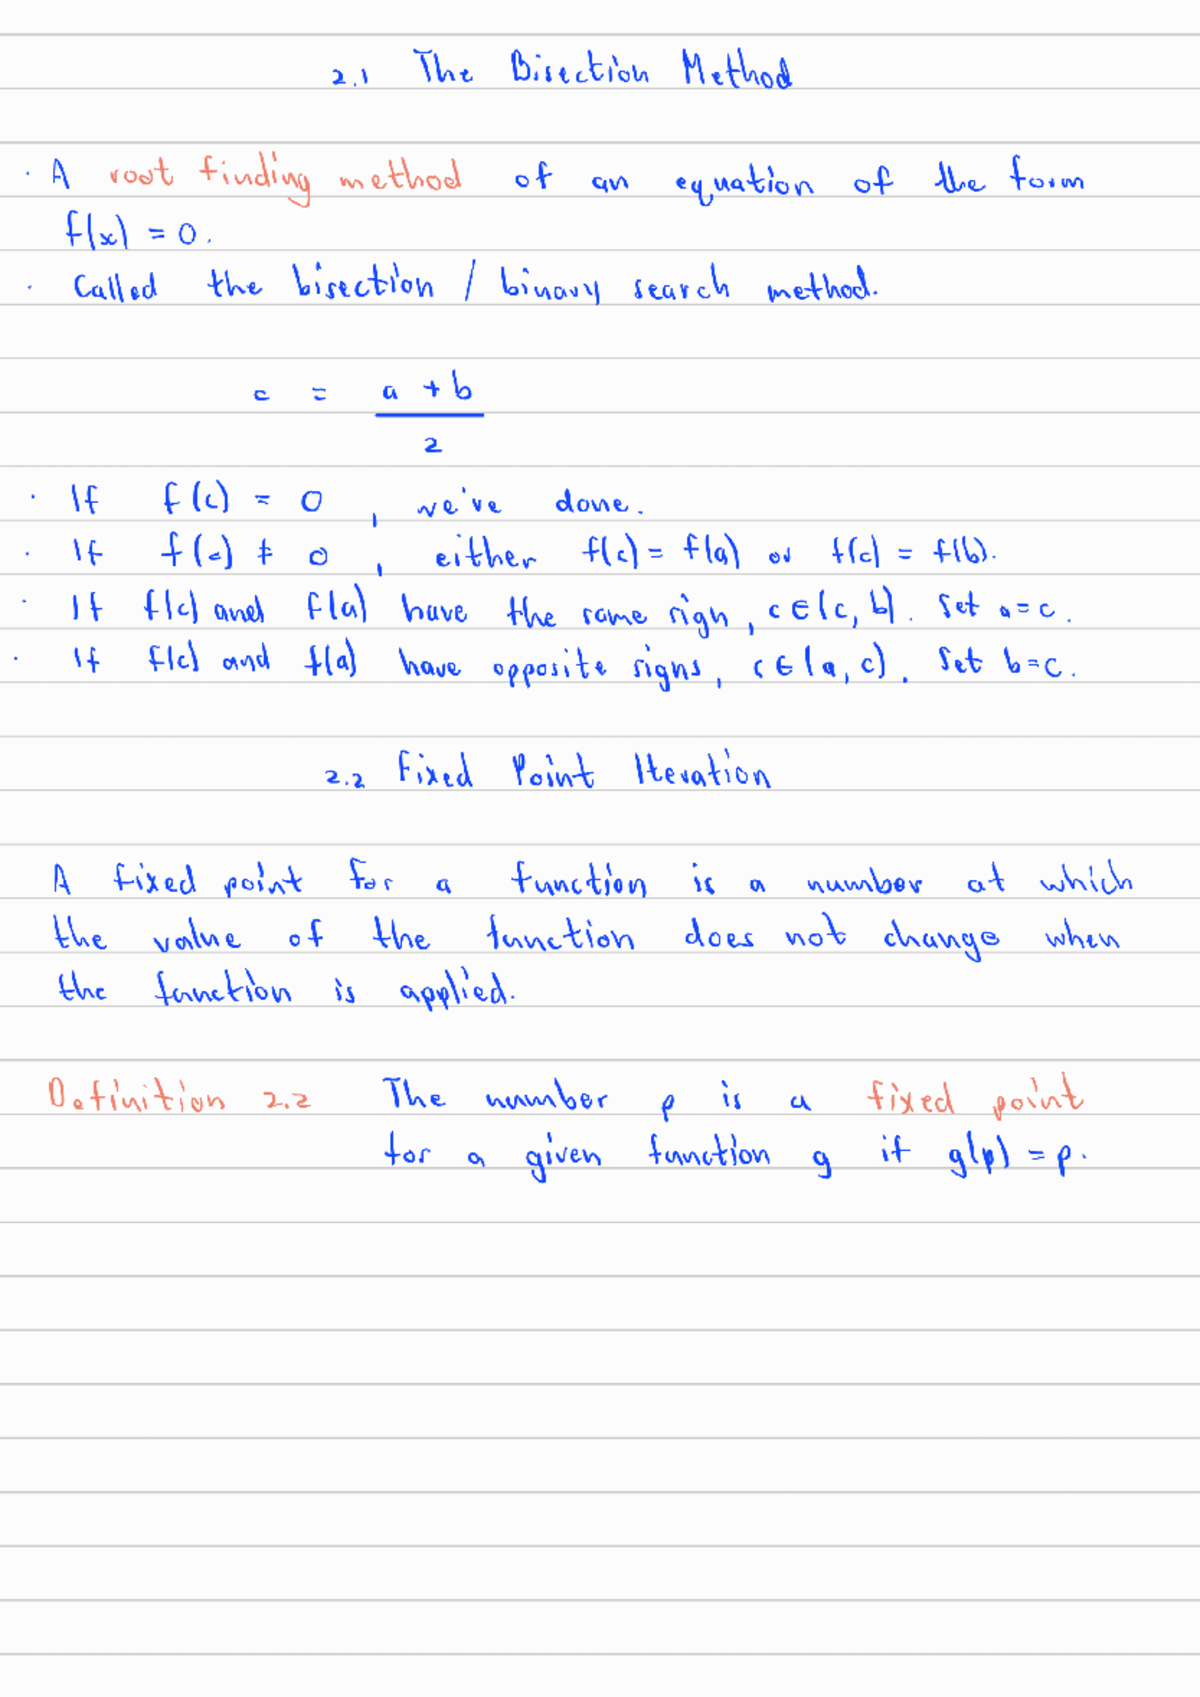 2.1 The Bisection Method
· A root finding method of an equation of the form
f(x) = 0.
· Called the bisection / binary search method.
c = a + b
2
· If f(c) = 0, we've done.
· If f(c) ≠ 0, either f(c) = f(a) or f(c) = f(b).
· If f(c) and f(a) have the same sign, c ∈ (c, b). Set a = c.
· If f(c) and f(a) have opposite signs, c ∈ (a, c). Set b = c.
2.2 Fixed Point Iteration
A fixed point for a function is a number at which
the value of the function does not change when
the function is applied.
Definition 2.2 The number p is a fixed point
for a given function g if g(p) = p.